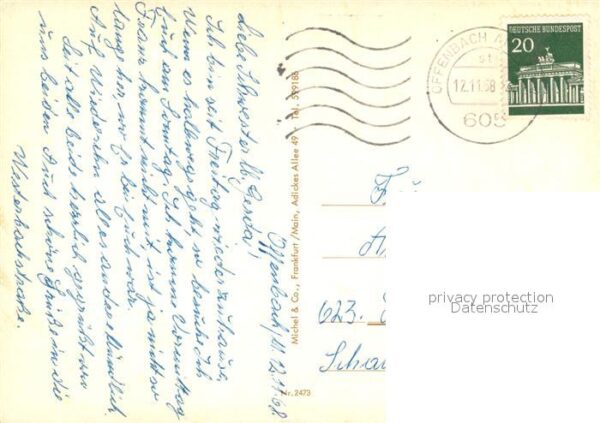 Offenbach/M. 12.11.68
Liebe Schwester u. Gerda!
Ich bin seit Freitag wieder zuhause,
Wenn es halbwegs geht so besuche ich
Euch am Sonntag. Ich komme Vormittag
Franz kommt nicht mit, ist ja nicht so
lange her wo Er bei Euch war.
Auf Wiedersehn alles andere mündlich
Seit alle beide herzlich gegrüßt von
uns beiden Auch schöne Grüße in die
Westerbachstraße.
Michel & Co., Frankfurt/Main, Adickes Allee 49 - Tel. 59918
Nr. 2473
OFFENBACH A
12.11.68
605
DEUTSCHE BUNDESPOST
20
623.
privacy protection
Datenschutz